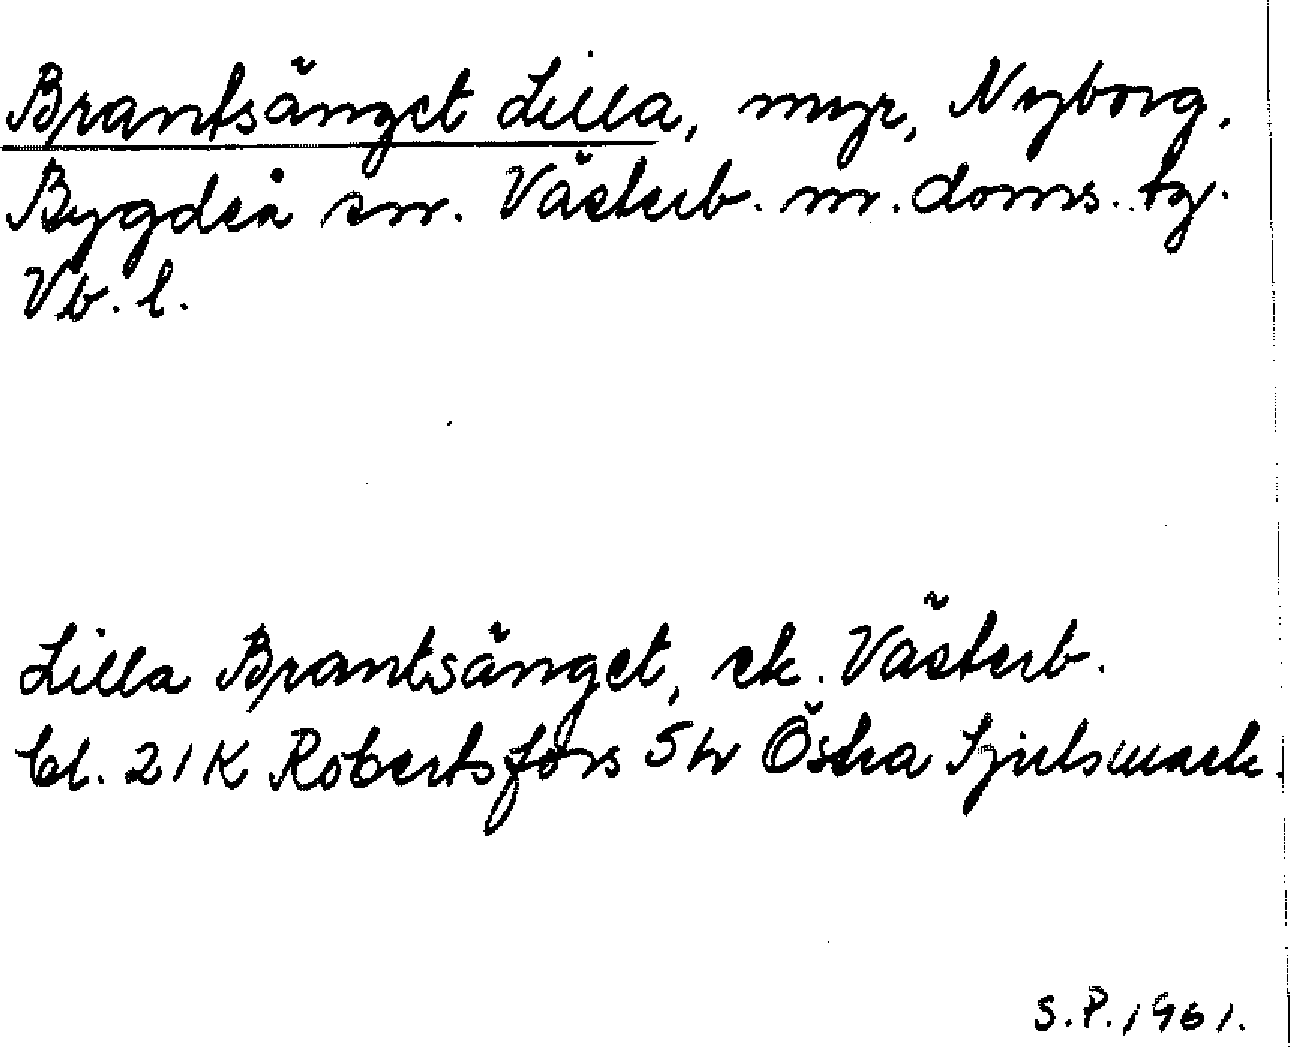 Brantsänget Lilla, myr, Nyborg,
Bygdeå sn. Västerb. m. doms. tg.
Vb. l.
Lilla Brantsänget, ek. Västerb.
bl. 21K Robertsfors 5h Östra Sjulsmark.
S.P. 1961.